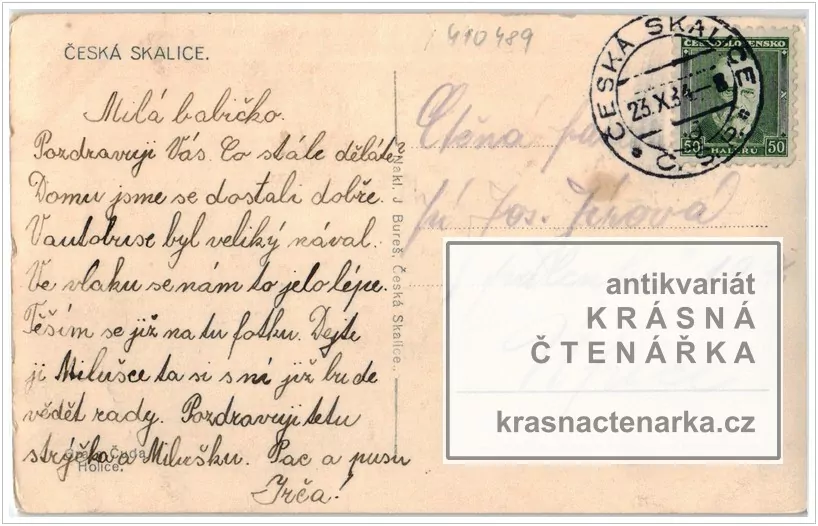 410489
ČESKÁ SKALICE.
ČESKÁ SKALICE
23.X.34.-8
ČESKOSLOVENSKO
50 HALÉŘŮ 50
Milá babičko.
Pozdravuji Vás. Co stále děláte?
Domu jsme se dostali dobře.
Vautobuse byl veliký nával.
Ve vlaku se nám to jelo lépe.
Těším se již na tu fotku. Dejte
ji Milušce ta si s ní již bude
vědět rady. Pozdravuji tetu
strýčka a Milušku. Pac a pusu
Irča!
Čuda
Holice.
Nakl. J. Bureš, Česká Skalice.
Ctěná
Jos.
antikvariát
KRÁSNÁ
ČTENÁŘKA
krasnactenarka.cz